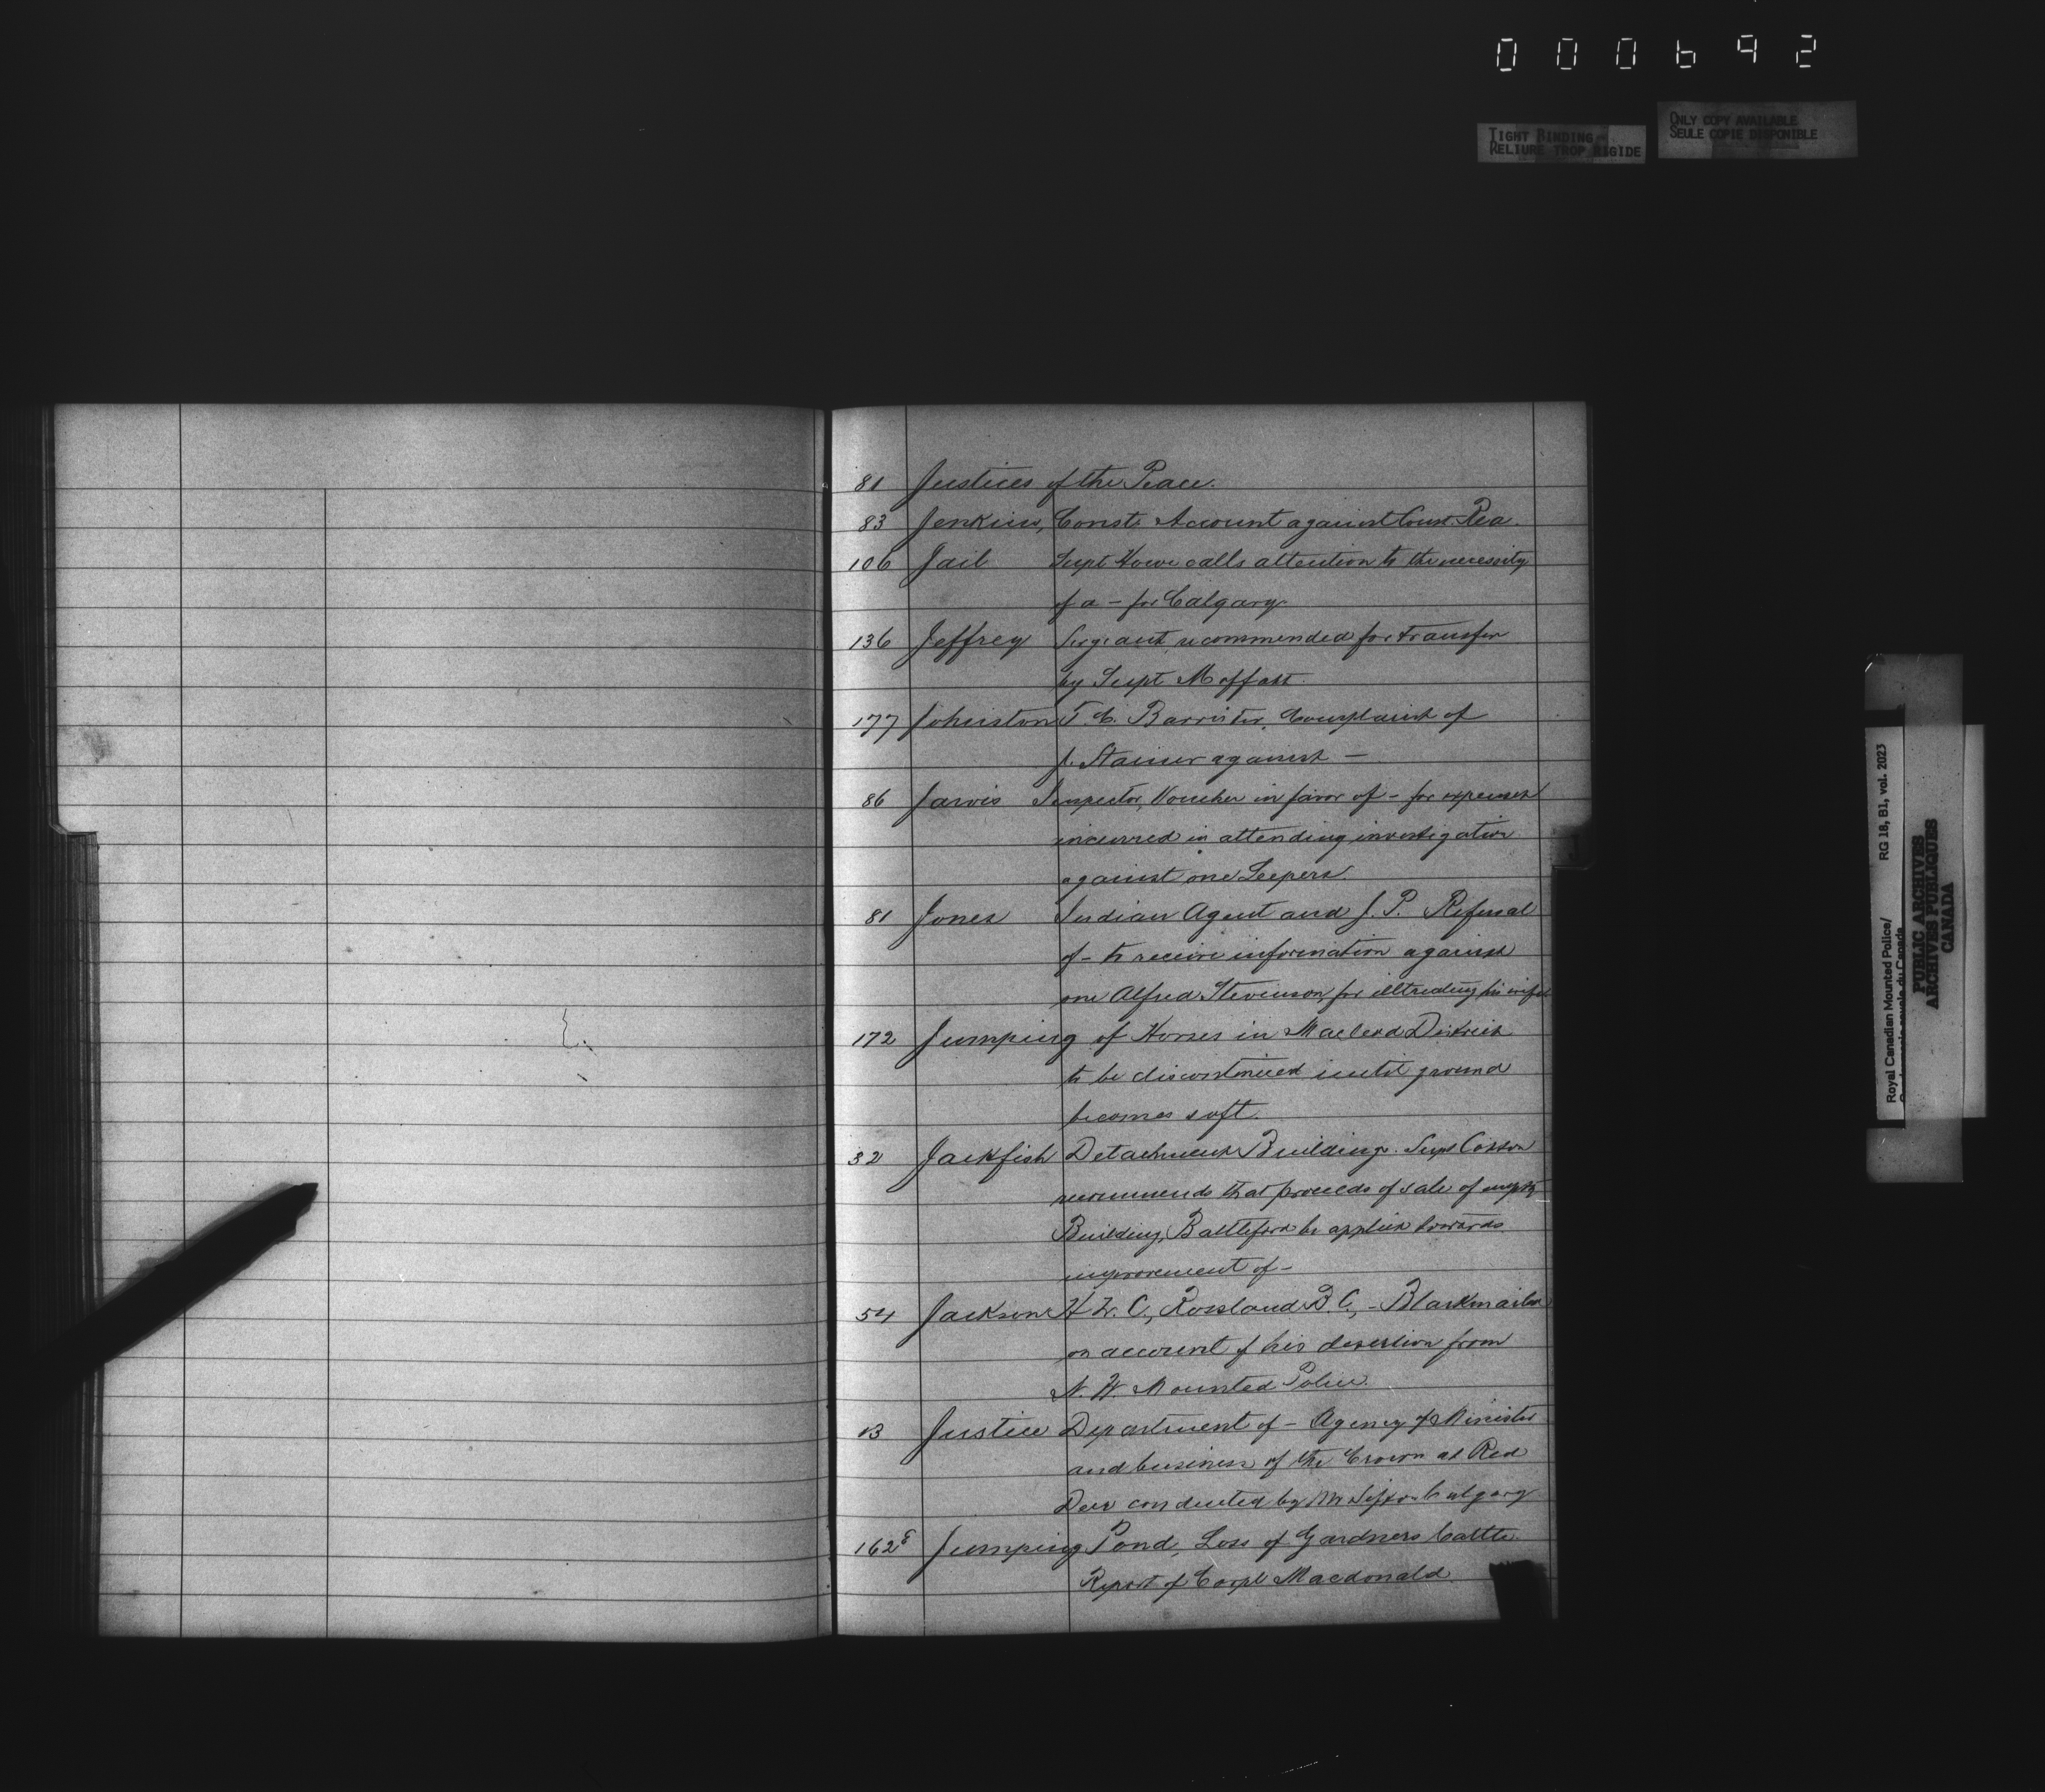 000692
TIGHT BINDING
RELIURE TROP RIGIDE
ONLY COPY AVAILABLE
SEULE COPIE DISPONIBLE
81 Justices of the Peace.
83 Jenkins, Const. Account against Const. Rea.
106 Jail Supt Howe calls attention to the necessity
of a - for Calgary.
136 Jeffrey Sergeant, recommended for transfer
by Supt Moffatt.
177 Johnston T. C. Barrister, Complaint of
J. Stainer against -
86 Jarvis Inspector, Voucher in favor of - for expenses
incurred in attending investigation
against one Leepers.
81 Jones Indian Agent and J. P. Refusal
of - to receive information against
one Alfred Stevenson, for illtreating his wife
172 Jumping of Horses in Macleod District
to be discontinued until ground
becomes soft.
32 Jackfish Detachment Building. Supt Cotton
recommends that proceeds of sale of empty
Building, Battleford be applied towards
improvement of -
54 Jackson H. W. C., Rossland B.C., - Blackmailed
on account of his desertion from
N. W. Mounted Police.
13 Justice Department of - Agency of Minister
and business of the Crown at Red
Deer conducted by Mr Sifton Calgary
162 Jumping Pond, Loss of Gardners Cattle.
Report of Corpl Macdonald.
Royal Canadian Mounted Police/
RG 18, B1, vol. 2023
PUBLIC ARCHIVES
ARCHIVES PUBLIQUES
CANADA